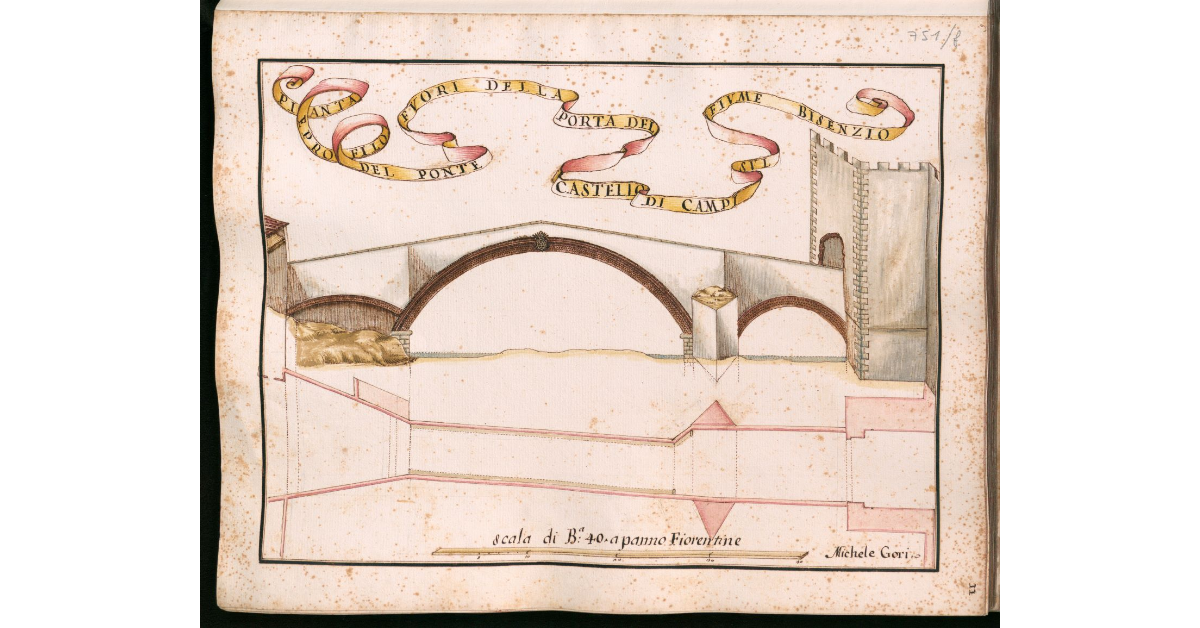 751/f
PIANTA
& PROFILO
DEL PONTE
FUORI DELLA
PORTA DEL
CASTELLO
DI CAMPI
SUL
FIUME BISENZIO
scala di B.ª 40. a panno Fiorentine
Michele Gori